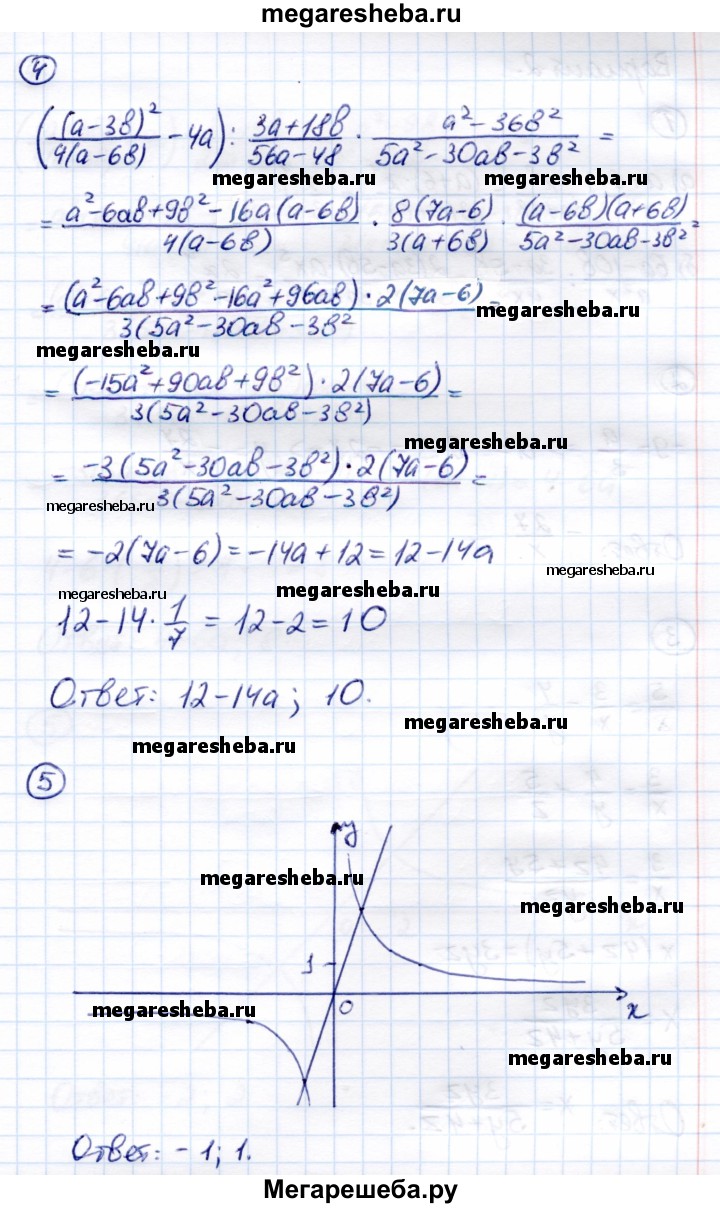 megaresheba.ru
④
((a-3в)²/4(a-6в) - 4a) : 3a+18в/56a-48 · a²-36в²/5a²-30aв-3в² =
megaresheba.ru megaresheba.ru
= a²-6aв+9в²-16a(a-6в)/4(a-6в) · 8(7a-6)/3(a+6в) · (a-6в)(a+6в)/5a²-30aв-3в² =
= (a²-6aв+9в²-16a²+96aв)·2(7a-6)/3(5a²-30aв-3в² =
megaresheba.ru
megaresheba.ru
= (-15a²+90aв+9в²)·2(7a-6)/3(5a²-30aв-3в²) =
megaresheba.ru
= -3(5a²-30aв-3в²)·2(7a-6)/3(5a²-30aв-3в²) =
megaresheba.ru
= -2(7a-6) = -14a+12 = 12-14a
megaresheba.ru
megaresheba.ru megaresheba.ru
12-14·1/7 = 12-2 = 10
Ответ: 12-14a; 10.
megaresheba.ru
megaresheba.ru
⑤
y
megaresheba.ru
megaresheba.ru
1
0
x
megaresheba.ru
megaresheba.ru
Ответ: -1; 1.
Мегарешеба.ру